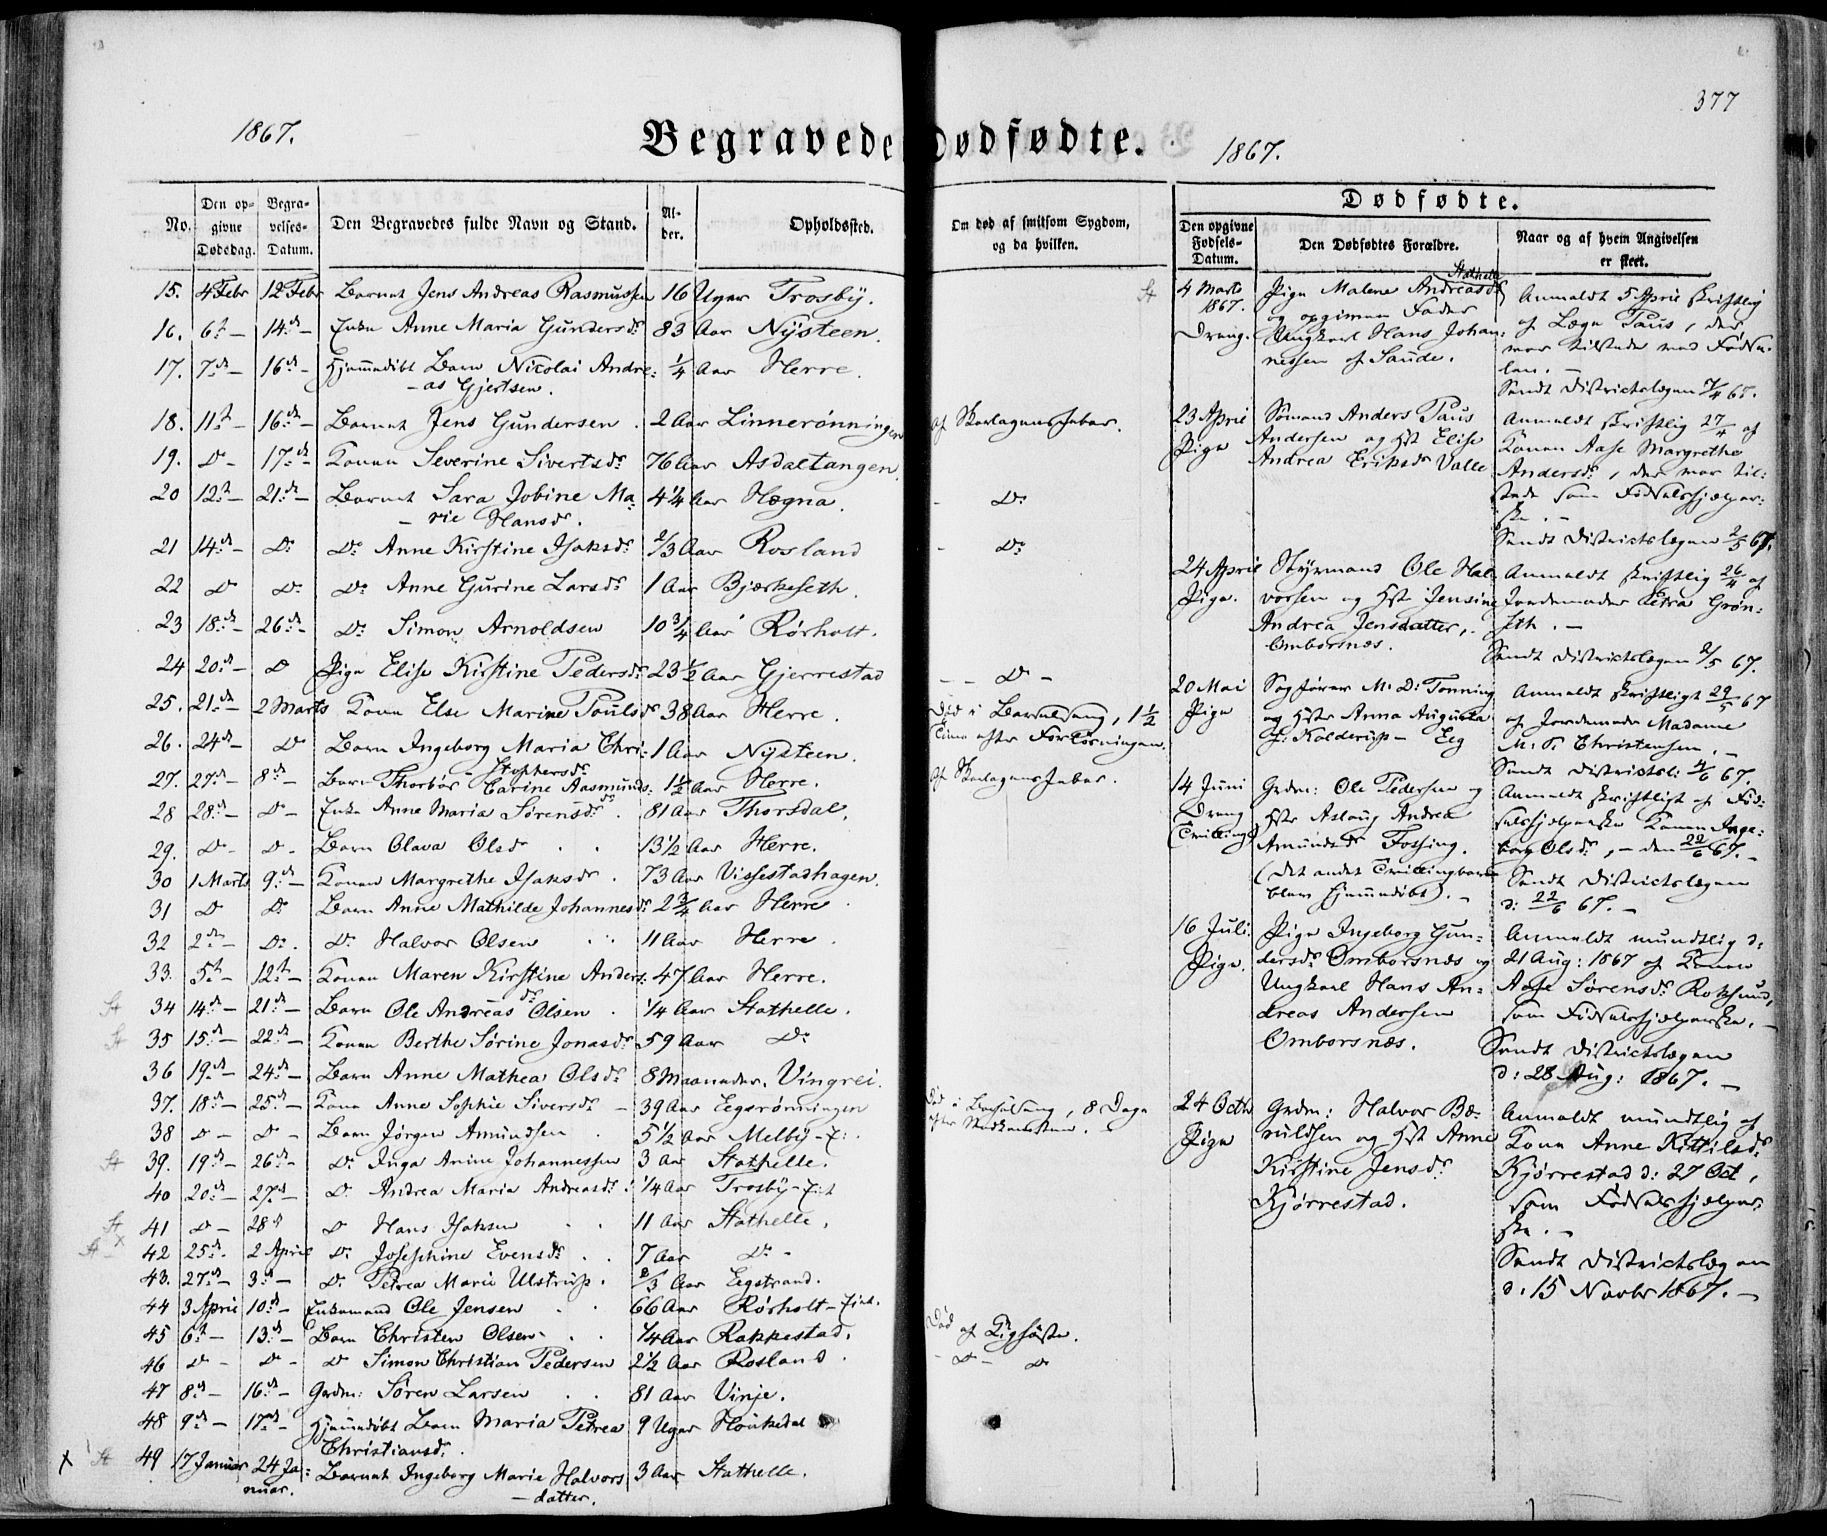 377
1867.
Begravede
Dødfødte.
1867.
No.
Den opgivne Dødsdag.
Begravelses-Datum.
Den Begravedes fulde Navn og Stand.
Alder.
Opholdssted.
Om død af smitsom Sygdom, og da hvilken.
15. 4 Febr 12 Febr Barnet Jens Andreas Rasmussen 16 Uger Trosby.
16. 6te – 14de – Enke Anne Maria Gundersdr 83 Aar Nysteen.
17. 7de – 16de – Hjemmedøbt Barn Nicolai Andre-
as Gjertsen. ¼ Aar Herre.
18. 11te – 16de – Barnet Jens Gundersen. 2 Aar Linnerønningen af Skarlagensfeber.
19. Do – 17de – Konen Severine Sivertsdr 76 Aar Asdaltangen.
20 12te – 21de – Barnet Sara Jobine Ma-
rie Hansdr. 4¼ Aar Hægna. – Do
21 14de – Do Do Anne Kirstine Isaksdr ⅔ Aar Rosland – Do
22 Do Do Do Anne Gurine Larsdr 1 Aar Bjerkeseth.
23 18de – 26de – Do Simon Arnoldsen 10¾ Aar Rørholt.
24 20de – Do Pige Elise Kirstine Pedersdr 23½ Aar Gjerrestad – – Do –
25. 21de – 2 Marts Kone Else Marine Poulsdr 38 Aar Herre. Død i Barselseng, 1½
Time efter Forløsningen.
26. 24de – Do Barn Ingeborg Maria Chri-
stophersdr 1 Aar Nysteen.
27. 27de – 8de – Barn Thorbør Carine Aasmunds-
dr 1½ Aar Herre. Af Skarlagensfeber.
28 28de – Do – Enke Anne Maria Sørensdr. 81 Aar Thorsdal.
29. Do – Do – Barn Olava Olsdr 13½ Aar Herre.
30 1 Marts 9de – Konen Margrethe Isaksdr. 73 Aar Vissestadhagen.
31 Do Do Barn Anne Mathilde Johannesdr 2¾ Aar Herre.
32 2den – Do. Do Halvor Olsen 11 Aar Herre.
33. 5te – 12te – Konen Maren Kirstine Anders-
dr 47 Aar Herre.
St 34 14de – 21de – Barn Ole Andreas Olsen. ¼ Aar Stathelle.
St 35 15de – 22de – Konen Berthe Sørine Jonasdr 59 Aar Do
36 19de – 24de – Barn Anne Mathea Olsdr 8 Maaneder. Vingrei.
37. 18de – 25de – Kone Anne Sophie Siversdr – 39 Aar Eegsrønningen Død i Barselseng, 8 Dage
efter Nedkomsten.
38 Do – Do – Barn Jørgen Amundsen. 5½ Aar Melby – E:.
St 39. 19de – 26de – Do Inga Anine Johannessen 3 Aar Stathelle.
40 20de – 27de – Do Andrea Maria Andreasdr. ¼ Aar Trosby – Eiet
St 41 Do – 28de Do Hans Isaksen 11 Aar Stathelle.
St x 42 25de. 2 April Do Josephine Evensdr. 7 Aar Do –
43. 27de – 3de – Do Petrea Marie Ulstrup. ⅔ Aar Eegstrand.
44 3 April 10de – Enkemand Ole Jensen 66 Aar Rørholt – Eiet.
45 6te – 13de – Barn Christen Olsen ¼ Aar Rakkestad. Død af Kighoste.
46 Do – Do – Do Simon Christian Pedersen 2½ Aar Rosland. – Do – Do
47 8de – 16de – Gaardm: Søren Larsen 81 Aar Vinje.
48 9de – 17de – Hjemmedøbt Barn Maria Petrea
Christiansdr. 9 Uger Houkedal
x St 49 17 Januar 24 Ja-
nuar. Barnet Ingeborg Marie Halvors-
datter. 3 Aar Stathelle.
Dødfødte.
Den opgivne Fødsels-Datum.
Den Dødfødtes Forældre.
Naar og af hvem Angivelsen er skeet.
St 4 Marts
1867.
Dreng.
Stathelle
Pige Malene Andreasdr
og opgiven Fader
Ungkarl Hans Johan-
nessen af Saude.
Anmeldt 5 April skriftlig
af Læge Paus, der
var tilstede ved Fødse-
len. –
Sendt Districtslægen
23 April
Pige
Sømand Anders Paus
Andersen og Hst Elise
Andrea Eriksdr Valle
Anmeldt skriftlig 27/4 af
Konen Aase Margrethe
Andersdr, der var til-
stede som Fødselshjelper-
ske. –
Sendt Districtslægen 2/5 67.
24 April
Pige.
Styrmand Ole Hal-
vorsen og Hst Jensine
Andrea Jensdatter,
Omborsnes.
Anmeldt skriftlig 26/4 af
Jordemoder Petra Grøn-
seth. –
Sendt Districtslægen 2/5 67.
20 Mai
Pige
Sagfører M. D. Tonning
og Hstr Anna Augusta
f: Kolderup – Eeg
Anmeldt skriftligt 29/5 67
af Jordemoder Madame
M. P. Christensen. –
Sendt Districtsl: 4/6 67.
14 Juni
Dreng
(Tvilling)
Grdm: Ole Pedersen og
Hstr Aslaug Andrea
Amundsdr Fossing.
(Det andet Tvillingbarn
blev hjemmedøbt). –
Anmeldt skriftligt af Fød-
selshjelperske Konen Inge-
borg Olsdr, – den 22/6 67. –
Sendt Districtslægen
d: 22/6 67. –
16 Juli.
Pige.
Pige Ingeborg Gun-
dersdr Omborsnæs og
Ungkarl Hans An-
dreas Andersen
Omborsnæs.
Anmeldt mundtlig d:
21 Aug: 1867 af Konen
Aase Sørensdr Roksund,
som Fødselshjelperske. –
Sendt Districtslægen
d: 28 Aug: 1867. –
24 Octbr
Pige
Grdm: Halvor Bæ-
ruldsen og Hst Anne
Kirstine Jensdr
Kjørrestad.
Anmeldt mundtlig af
Kone Anne Kittilsdr
Kjørrestad d: 27 Oct,
som Fødselshjelper-
ske. –
Sendt Districtslægen
d: 15 Novbr 1867. –